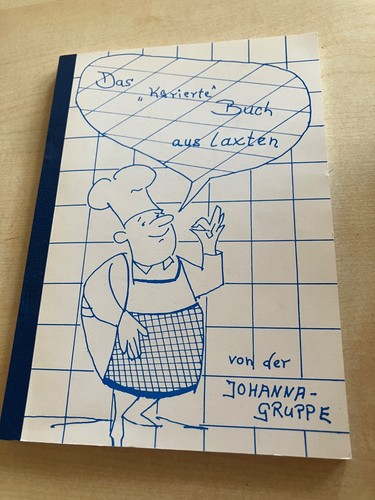 Das
„Karierte“
Buch
aus Laxten
von der
JOHANNA-
GRUPPE